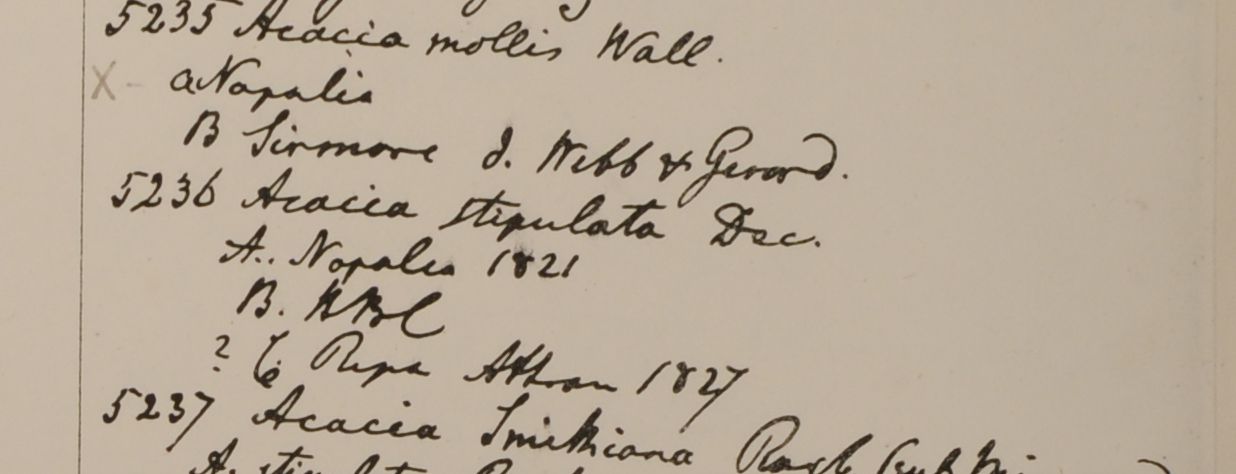 5235 Acacia mollis Wall.
X - a Napalia
B Sirmore J. Webb & Gerard.
5236 Acacia stipulata Dec.
A. Napalia 1821
B. HBC
? C Ripa Attran 1827
5237 Acacia Smithiana Roxb
A. stipulata